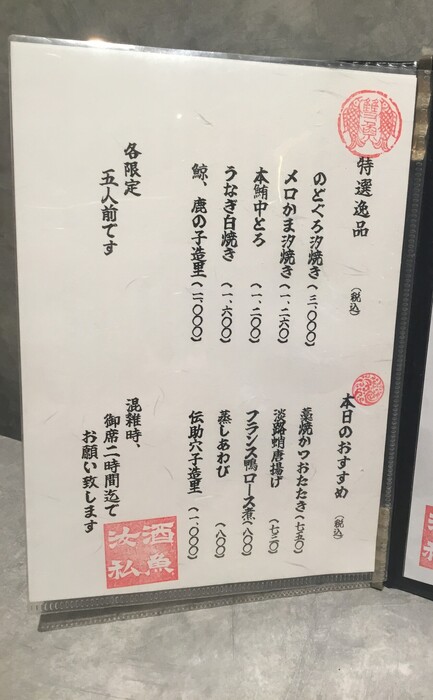 雙魚
特選逸品
(税込)
のどぐろ汐焼き(三、〇〇〇)
メロかま汐焼き(一、二六〇)
本鮪中とろ(一、二〇〇)
うなぎ白焼き(一、六〇〇)
鯨、鹿の子造里(二、〇〇〇)
各限定
五人前てす
本日のおすすめ
(税込)
藁焼かつおたたき(七五〇)
淡路蛸唐揚げ(七三〇)
フランス鴨ロース煮(八〇〇)
蒸しあわび(八〇〇)
伝助穴子造里(一、〇〇〇)
混雑時、
御席二時間迄て
お願い致します
酒魚
汝私